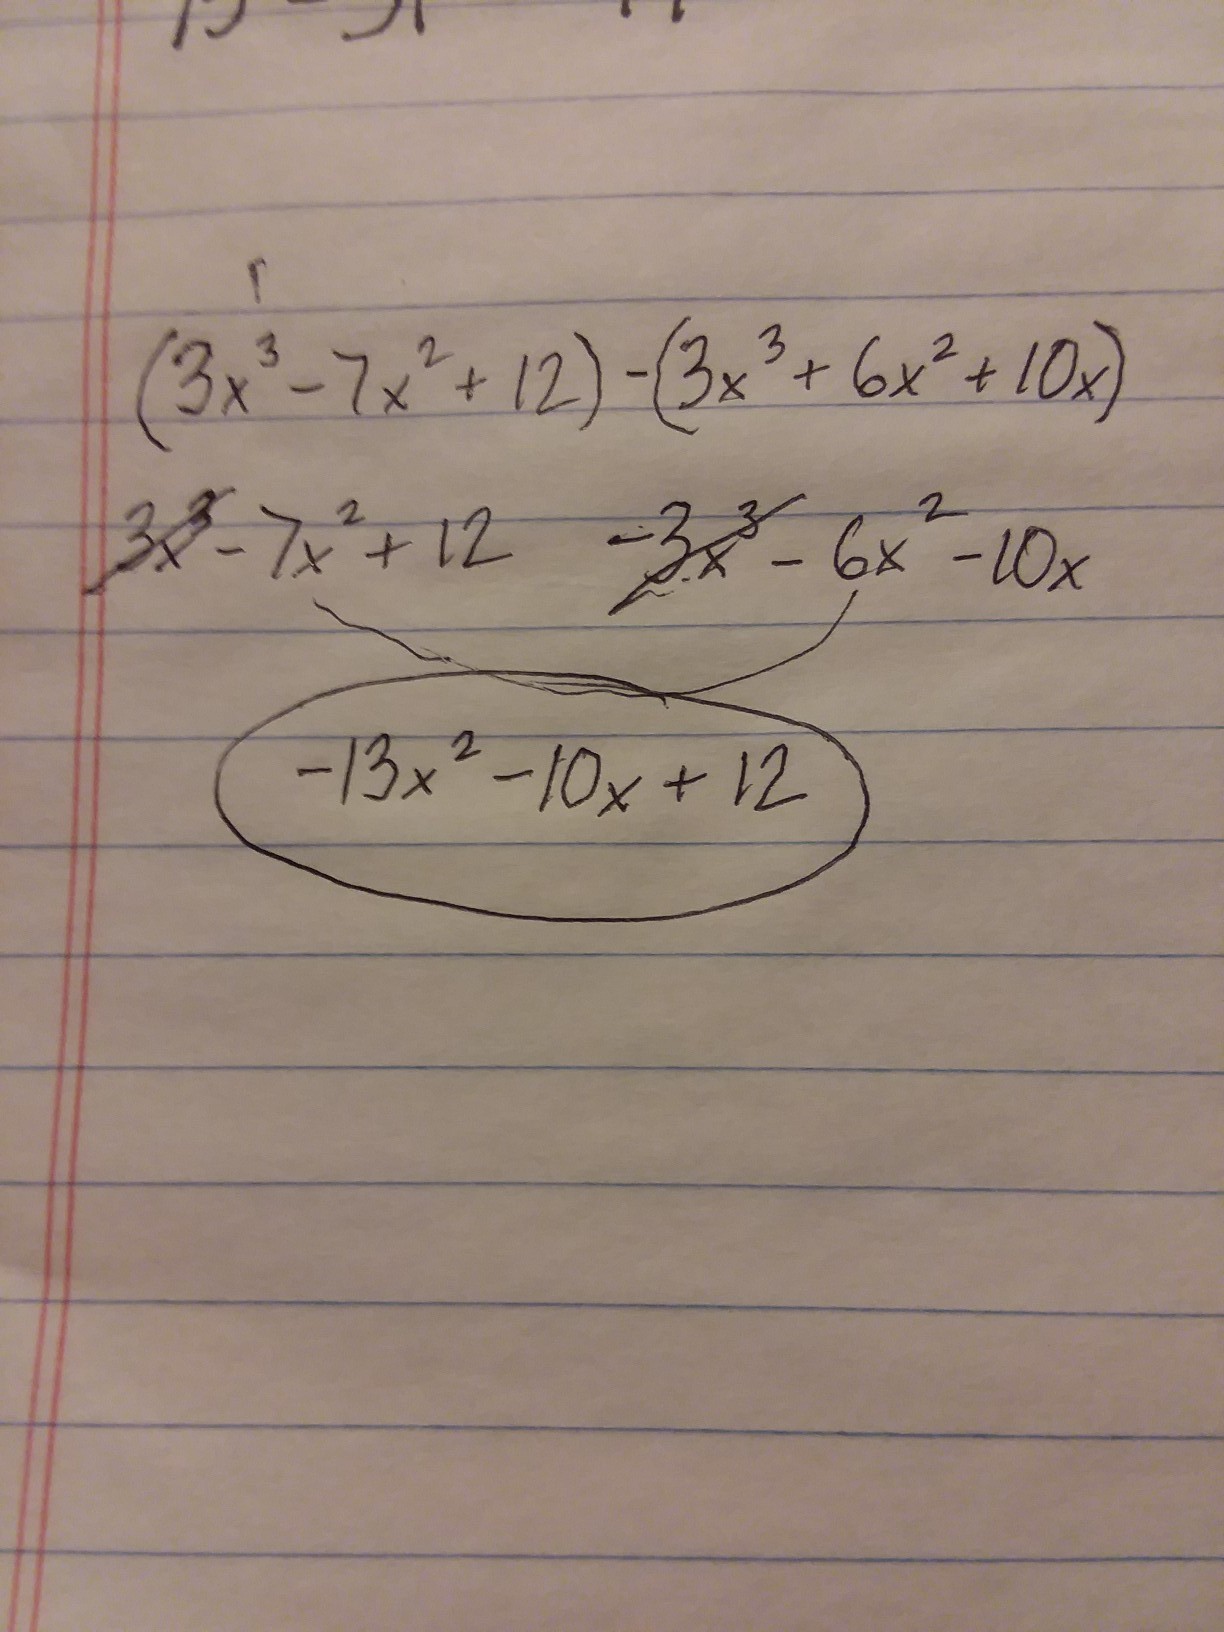 (3x³ - 7x² + 12) - (3x³ + 6x² + 10x)
3x³ - 7x² + 12 -3x³ - 6x² - 10x
-13x² - 10x + 12